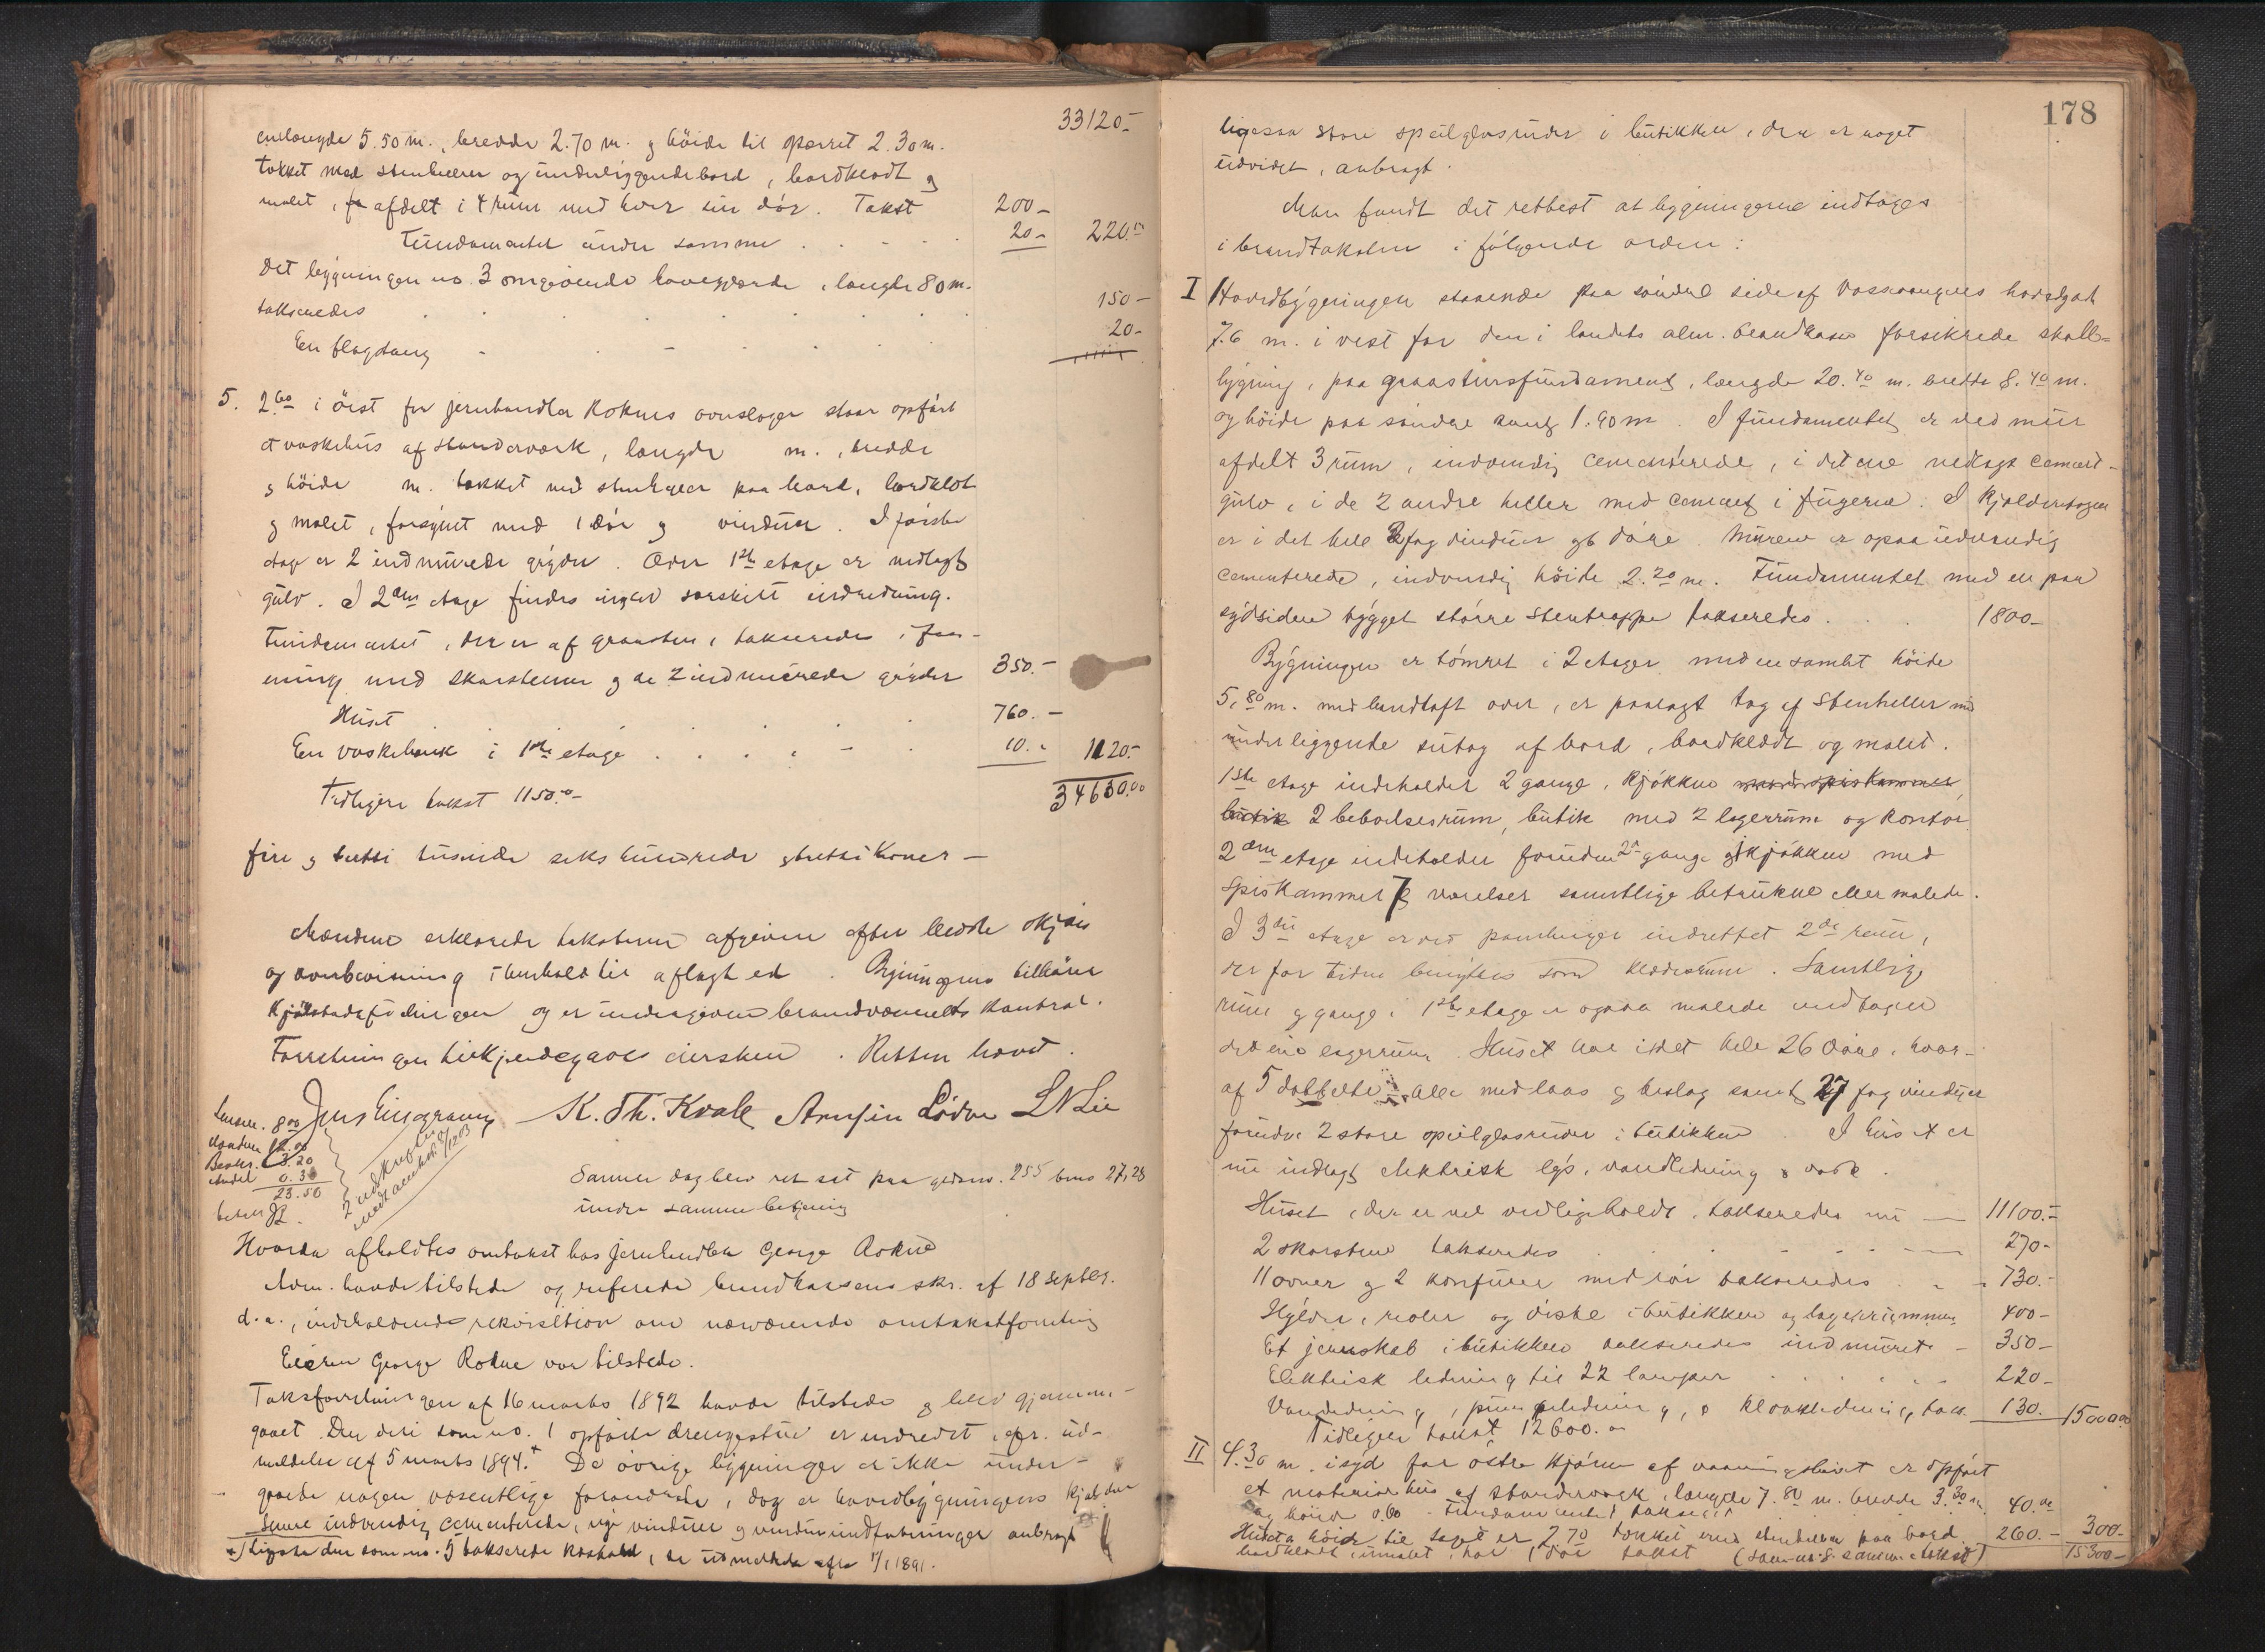 33120.-
enlængde 5.50 m., bredde 2.70 m. og høide til sparret 2.30 m.
takket med stenheller og underliggende bord, bordklædt og
malet, afdelt i 4 rum med hver sin dør. Takst 200 -
Fundamentet under samme . . . . 20 - 220.-
Det bygningen no. 3 omgivende havegjærde, længde 80 m.
takseredes . . . . . . 150 -
En flagstang - . - . . . 20 -
5. 2.60 i øst for jernhandler Roknes ovnslager staar opført
et vaskehus af standerværk, længde m., bredde
og høide m. takket med stenheller paa bord, bordklædt
og malet, forsynet med 1 dør og vinduer. I første
etage er 2 indmurede gryder. Over 1ste etage er nedlagt
gulv. I 2den etage findes ingen særskilt indredning.
Fundamentet, der er af graasten, takseredes i for-
ening med skorstenen og de 2 indmurede gryder 350.-
Huset . . . . . 760.-
En vaskebænk i 1ste etage . . . . - . 10.- 1120.-
Tidligere takst 1150.- 34630.00
fire og tretti tusinde seks hundrede og tretti kroner -
Mændene erklærede taksterne afgivne efter bedste skjøn
og overbevisning i henhold til aflagt ed. Bygningerne tilhører
og er undergivne brandvæsenets kontrol.
Forretningen tilkjendegaves eiersken. Retten hævet.
K. Th. Kvale Arnfin Lödve L N Lie
8 00
12.00
3.20
0.30
23.50
Samme dag blev ret sat paa gaardsno. 255 brno 27, 28
under samme betjening
Hvorda afholdtes omtakst hos jernhandler George Rokne
Adm. havde tilstede og refererede brandkassens skr. af 18 septbr.
d.a., indeholdende rekvisition om nærværende omtakstforretning
Eieren George Rokne var tilstede.
Takstforretningen af 16 marts 1892 havdes tilstede og blev gjennem-
gaaet. Den deri som no. 1 opførte drengestue er nedrevet, cfr. ud-
meldelse af 5 marts 1894.+ De øvrige bygninger er ikke under-
gaaede nogen væsentlige forandringer, dog er hovedbygningens kjælder
indvendig cementerede, nye vinduer og vindusindfatninger anbragt
+) Ligesaa den som no. 5 takserede, er udmeldt efter 1/1 1891.
178
ligesaa store speilglasruder i butikken, der er noget
udvidet, anbragt.
Man fandt det rettest at bygningerne indtages
i brandtaksten i følgende orden:
I Hovedbygningen staaende paa søndre side af Vossevangens hovedgat
7.6 m. i vest for den i landets alm. brandkasse forsikrede stald-
bygning, paa graastensfundament, længde 20.40 m. bredde 8.40 m.
og høide paa søndre kant 1.90 m. I fundamentet er ved mur
afdelt 3 rum, indvendig cementerede, i det ene nedlagt cement-
gulv, i de 2 andre heller med cement i fugerne. I kjælderetagen
er i det hele fag vinduer og 6 døre. Murene er ogsaa udvendig
cementerede, indvendig høide 2.20 m. Fundamentet med en paa
sydsiden bygget større stentrappe takseredes . . . 1800 -
Bygningen er tømret i 2 etager med en samlet høide
5.80 m. med bordloft over, er paalagt tag af stenheller med
underliggende sutag af bord, bordklædt og malet.
1ste etage indeholder 2 gange, kjøkken med spiskammer,
butik 2 beboelsesrum, butik med 2 lagerrum og kontor.
2den etage indeholder foruden 2 gange og 1 kjøkken med
spiskammer 7 værelser samtlige betrukne eller malede.
I 3die etage er ved panelinger indrettet 2de rum,
der for tiden benyttes som klædesrum. Samtlige
rum og gange i 1ste etage er ogsaa malede undtagen
det ene lagerrum. Huset har i det hele 26 døre, hvor-
af 5 dobbelte alle med laas og beslag samt 27 fag vinduer
foruden 2 store speilglasruder i butikken. I huset er
nu indlagt elektrisk lys, vandledning & vask.
Huset, der er vel vedligeholdt, takseredes nu - 11100.-
2 skorstene takseredes . . . . - - 270 -
11 ovner og 2 komfurer med rør takseredes . . - 730.-
Hylder, reoler og diske i butikken og lagerrummene 400 -
Et jernskab i butikken takseredes indmuret - 350 -
Elektrisk ledning til 22 lamper . . . . . 220 -
Vandledning, pumpeledning, & kloakledning, takst 130. 15000.00
Tidligere takst 12600.00
II 4.30 m. i syd for østre hjørne af vaaningshuset er opført
et materialhus af standerværk, længde 7.80 m. bredde 3.30 m.
og høide 0.60. Fundamentet takseret 40.00
Husets høide til taget er 2.70 takket med stenheller paa bord 260.- 300 -
bordklædt, umalet, har 1 dør takst (som no. 8 samme takst) 15300 -